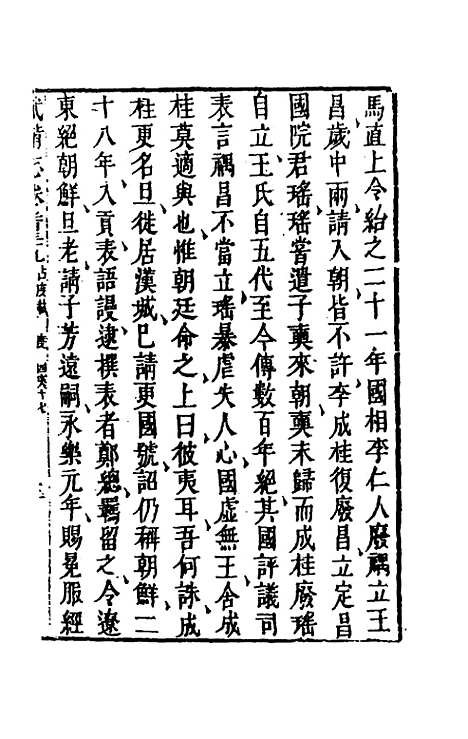 馬直上令紿之二十一年國相李仁人廢禑立王
昌歲中兩請入朝皆不許李成桂復廢昌立定昌
國院君瑤瑤嘗遣子奭來朝奭未歸而成桂廢瑤
自立王氏自五代至今傳數百年絕其國評議司
表言禑昌不當立瑤暴虐失人心國虛無王舍成
桂莫適與也惟朝廷命之上曰彼夷耳吾何誅成
桂更名旦徙居漢城已請更國號詔仍稱朝鮮二
十八年入貢表語謾逮撰表者鄭總羈留之令遼
東絕朝鮮旦老請子芳遠嗣永樂元年賜冕服經
武備志